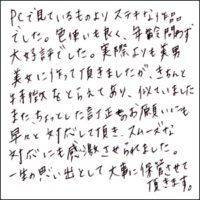 PCで見ているものよりステキな作品
でした。色使いも良く、年齢問わず
大好評でした。実際よりも美男
美女に作って頂きましたが、きちんと
特徴をとらえてあり、似ていました
また、ちょっとした訂正のお願いにも
早々と対応して頂き、スムーズな
対応にも感激させられました。
一生の思い出として大事に保管させて
頂きます。